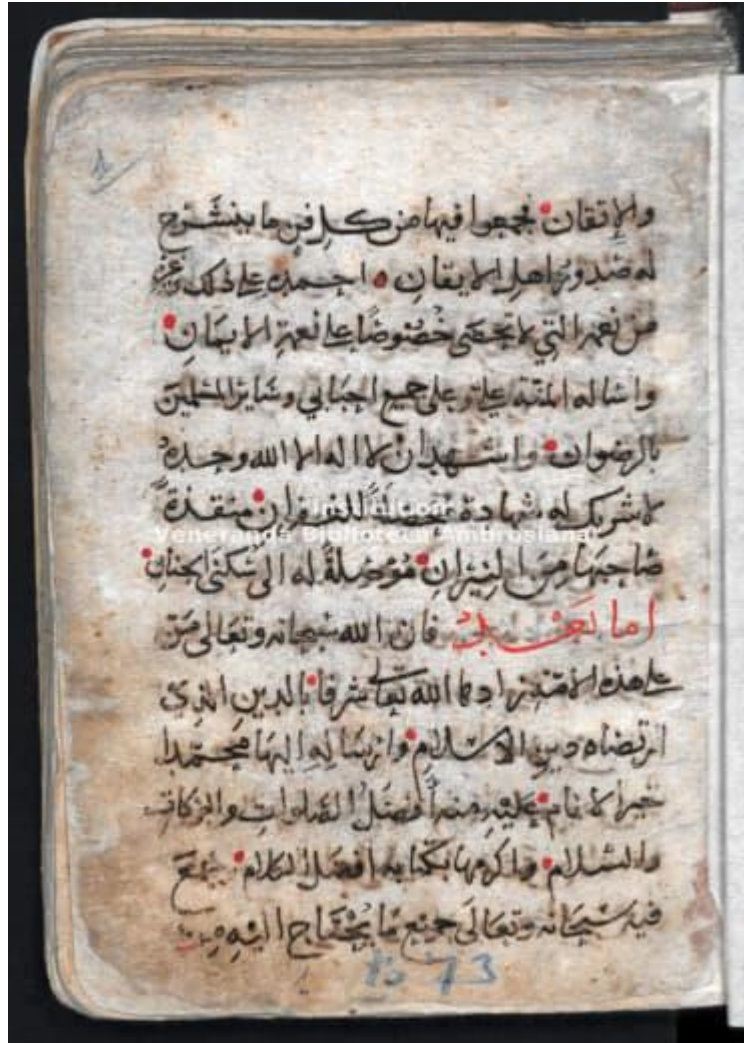 والإتقان • فجمعوا فيها من كل فن ما ينشرح
له صدور اهل الايقان • احمده على ذلك وغيره
من نعمه التي لا تحصى خصوصًا على نعمة الايمان •
واساله المنة علي وعلى جميع احبابي وسائر المسلمين
بالرضوان • واشهد ان لا اله الا الله وحده
لا شريك له شهادة محصلةً للغفران • منقذةً
صاحبها من النيران • مُوصلةً له الى سكنى الجنان •
اما بعد فان الله سبحانه وتعالى منّ
على هذه الامة زادها الله تعالى شرفا • بالدين الذي
ارتضاه دين الاسلام • وارساله اليها محمدا
خير الانام • عليه منه أفضل الصلوات والزكاة
والسلام • واكرمها بكتابه افضل الكلام • جمع
فيه سبحانه وتعالى جميع ما يحتاج اليه من
Institution
Veneranda Biblioteca Ambrosiana
73